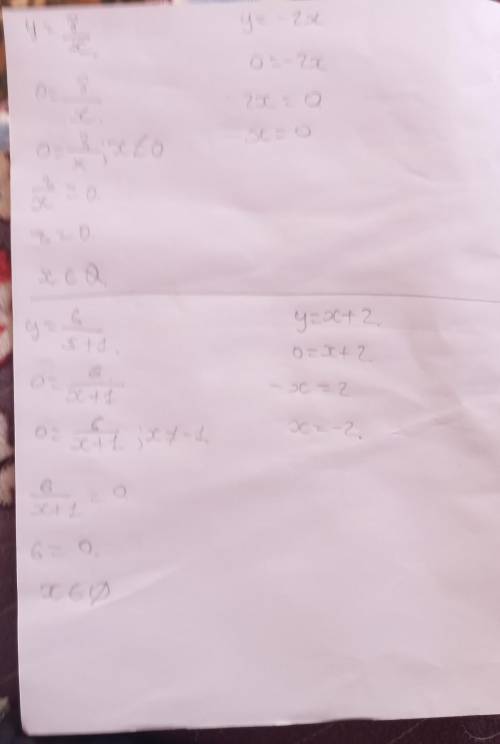 y = 8/x
0 = 8/x
0 = 8/x ; x ≠ 0
8/x = 0
8 = 0
x ∈ Ø
y = -2x
0 = -2x
2x = 0
x = 0
y = 6/x+1
0 = 6/x+1
0 = 6/x+1 ; x ≠ -1
6/x+1 = 0
6 = 0
x ∈ Ø
y = x+2
0 = x+2
-x = 2
x = -2